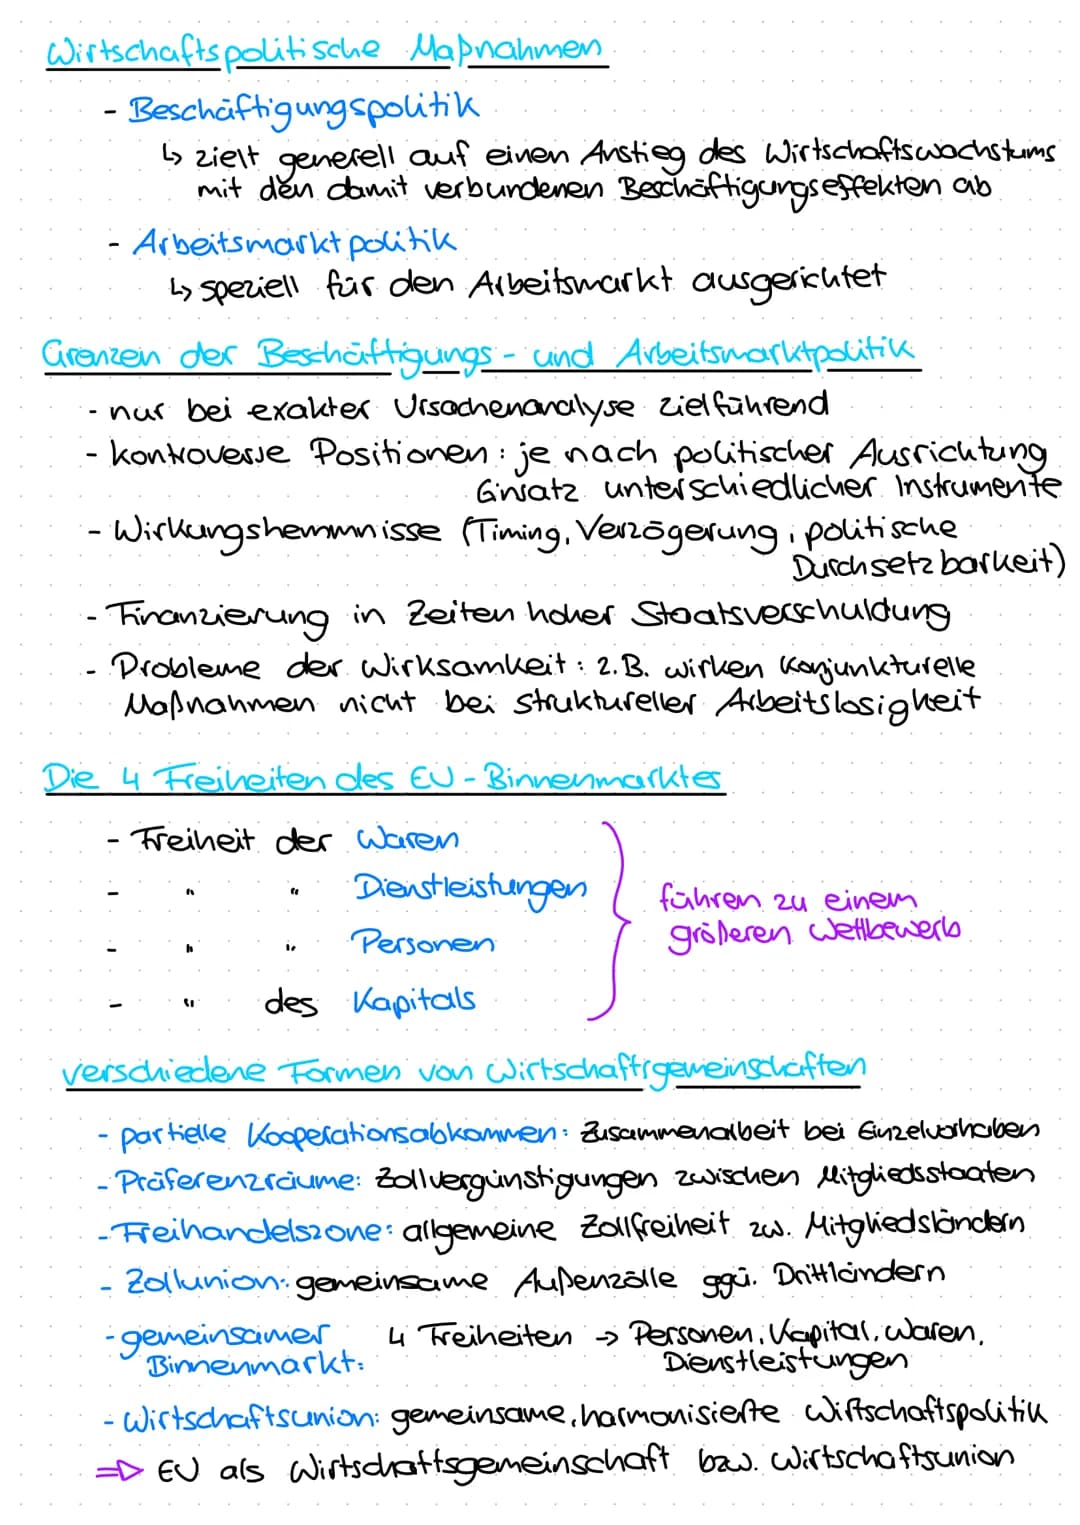 Wirtschaftspolitische Maßnahmen
- Beschäftigungspolitik
↳ zielt generell auf einen Anstieg des Wirtschaftswachstums
mit den damit verbundenen Beschäftigungseffekten ab
- Arbeitsmarktpolitik
↳ speziell für den Arbeitsmarkt ausgerichtet
Grenzen der Beschäftigungs- und Arbeitsmarktpolitik
- nur bei exakter Ursachenanalyse zielführend
- kontroverse Positionen: je nach politischer Ausrichtung
Einsatz unterschiedlicher Instrumente
- Wirkungshemmnisse (Timing, Verzögerung, politische
Durchsetzbarkeit)
- Finanzierung in Zeiten hoher Staatsverschuldung
- Probleme der Wirksamkeit: z.B. wirken konjunkturelle
Maßnahmen nicht bei struktureller Arbeitslosigkeit
Die 4 Freiheiten des EU-Binnenmarktes
- Freiheit der Waren
- " " Dienstleistungen
führen zu einem
größeren Wettbewerb
- " " Personen
- " des Kapitals
verschiedene Formen von Wirtschaftsgemeinschaften
- partielle Kooperationsabkommen: Zusammenarbeit bei Einzelvorhaben
- Präferenzräume: Zollvergünstigungen zwischen Mitgliedsstaaten
- Freihandelszone: allgemeine Zollfreiheit zw. Mitgliedsländern
- Zollunion: gemeinsame Außenzölle ggü. Drittländern
- gemeinsamer 4 Freiheiten → Personen, Kapital, Waren,
Binnenmarkt: Dienstleistungen
- Wirtschaftsunion: gemeinsame, harmonisierte Wirtschaftspolitik
⇒ EU als Wirtschaftsgemeinschaft bzw. Wirtschaftsunion